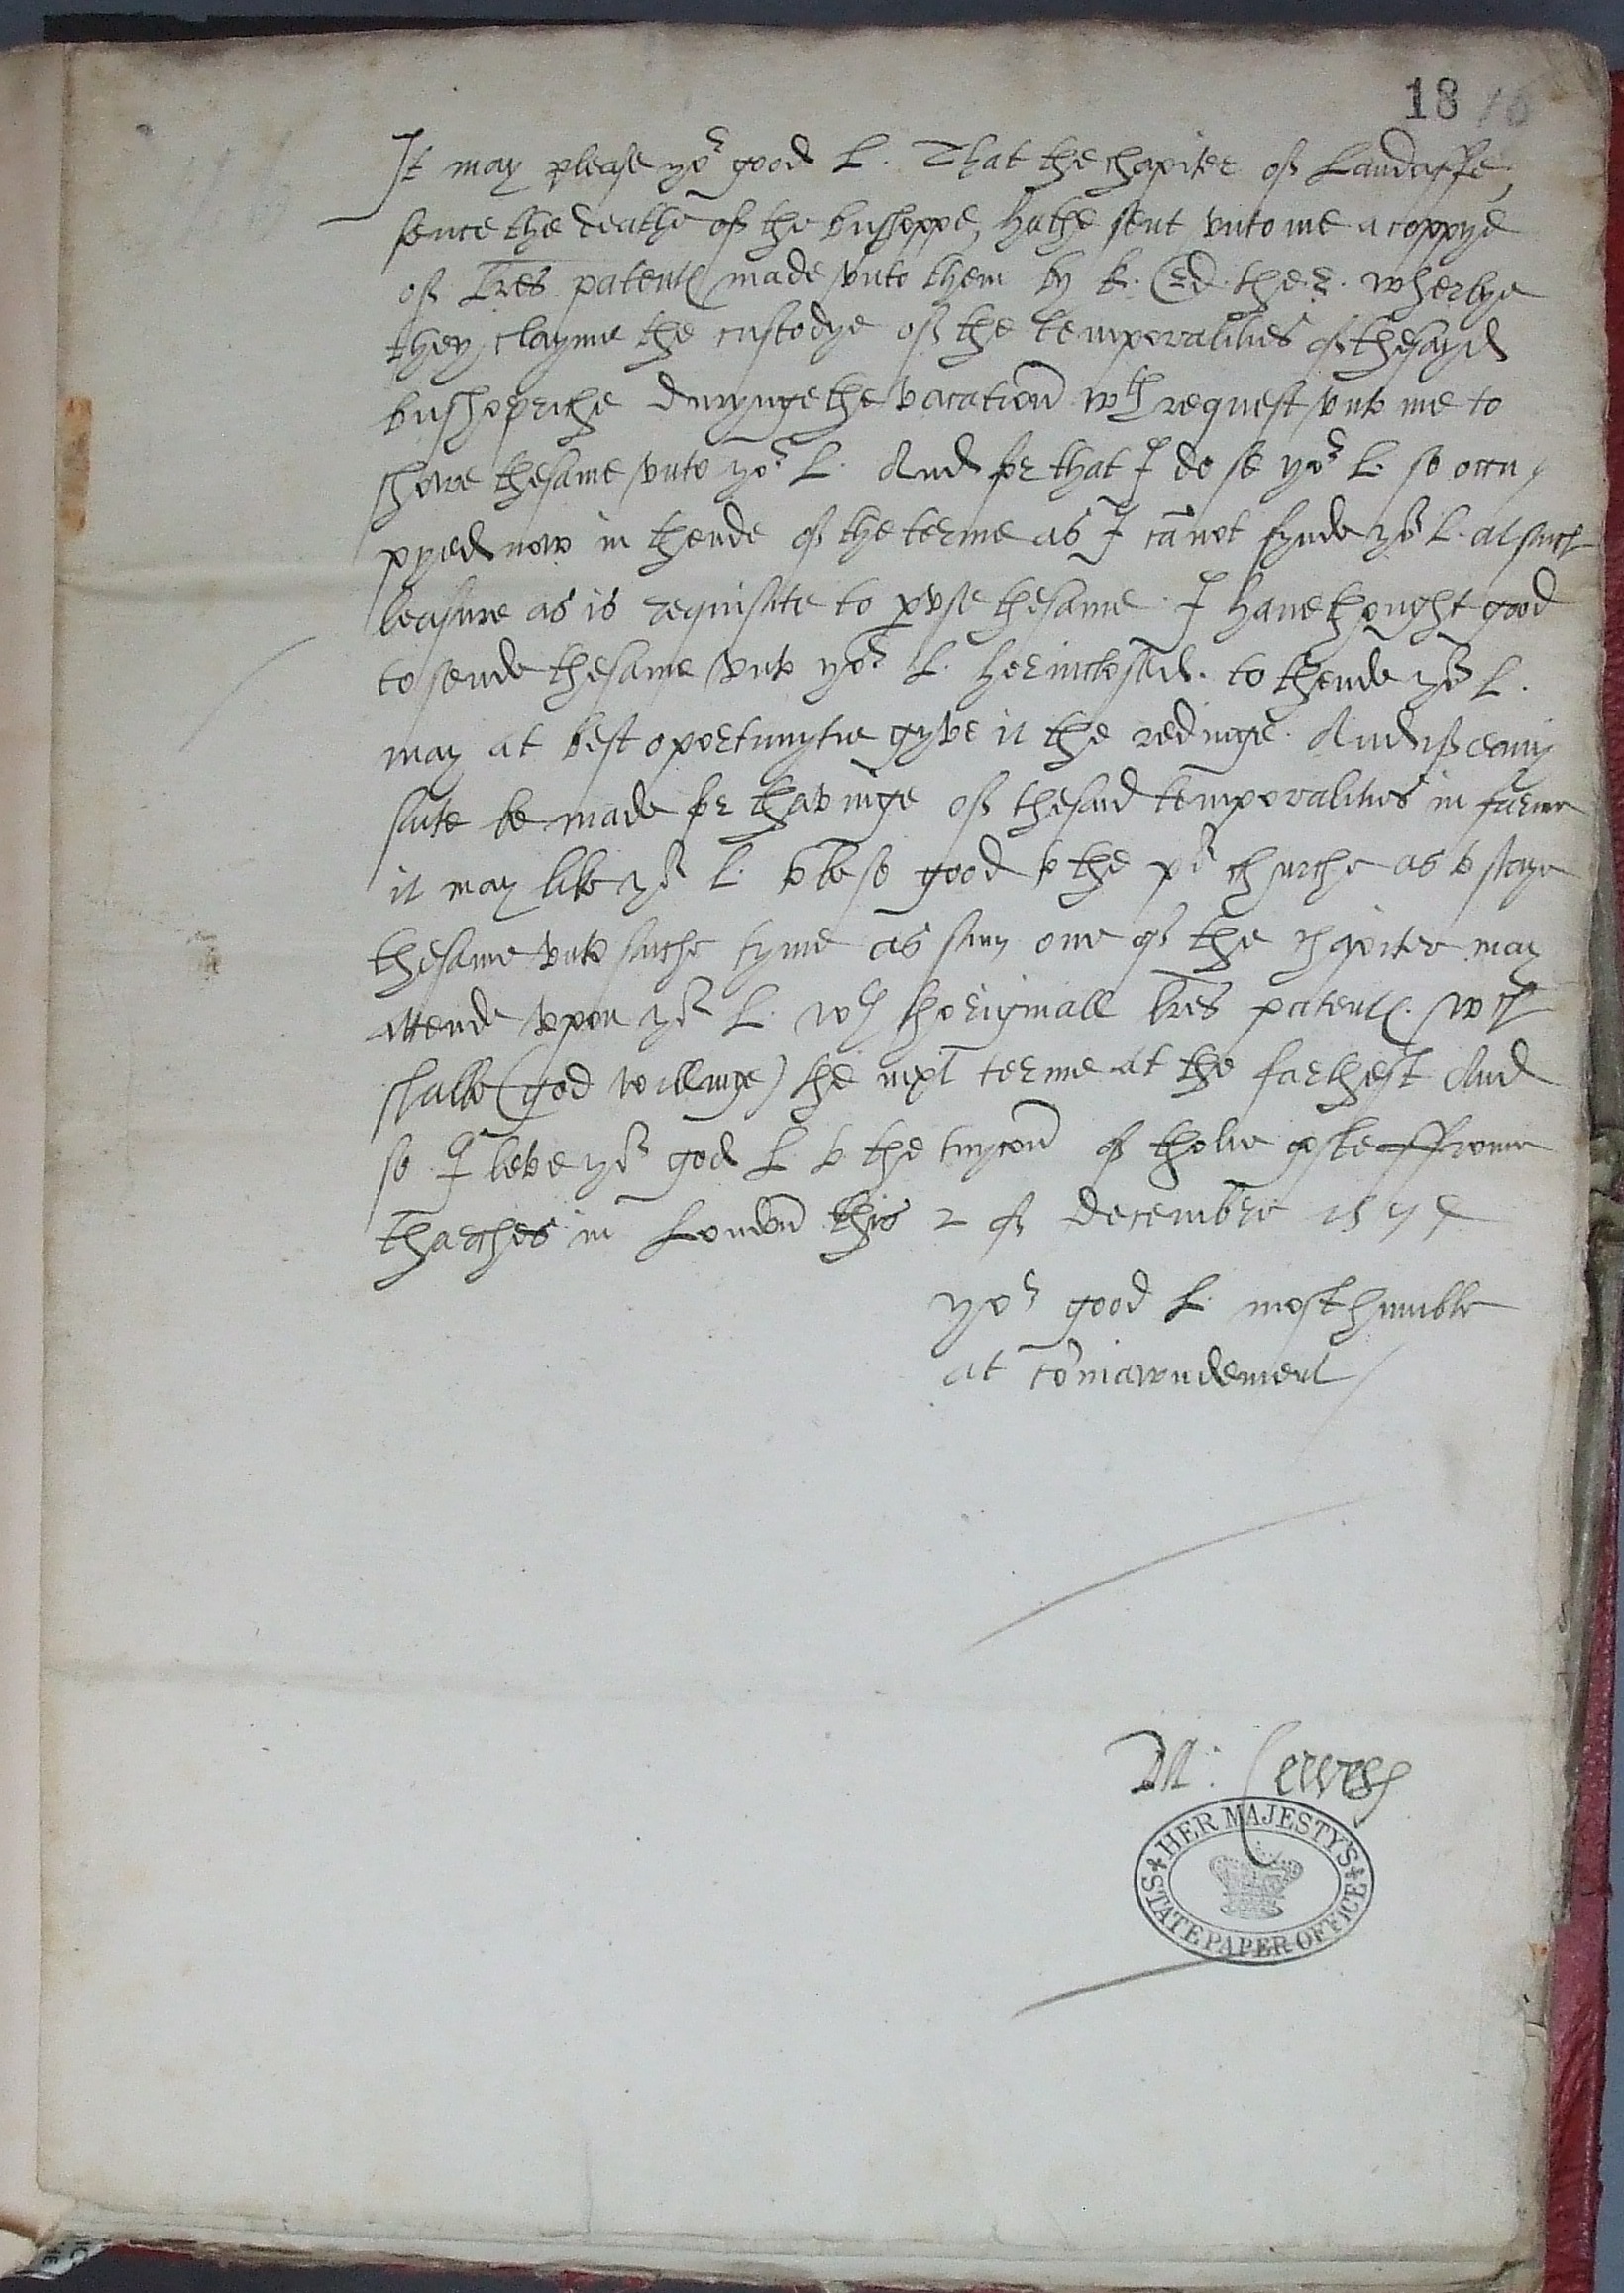 18 16
It may please yor good L. That the chapiter off Landaffe,
sence the deathe off the busshoppe, hathe sent vnto me a coppye
off Lres patent made vnto them by k. Ed. the. 2. wherbye
they clayme the custodye off the temporalities off thesayd
busshopriche durynge the vacation wth request vnto me to
shewe thesame vnto yor L. And for that I do se yor L. so occu/
pyed now in thende off the terme as I canot fynde yor L. at such
leasure as is requisite to pvse thesame. I have thought good
to sende thesame vnto yor L. herinclosed. to thende yor L.
may at best oportunytie gyve it the redinge. And iff eny
sute be made for thavinge off thesaid temporalities in farme
it may like yor L. to be so good to the pr churche as to staye
thesame vnto suche tyme as sum one off the chapiter may
attende vpon yor L. wth thoriginall lres patent. wch
shalbe (god willinge) the next terme at the farthest And
so I leve yor good L. to the tuycon off tholie goste ffrome
tharches in London this 2 off decembre 1574
yor good L. most humble
at comawndement
M: Lewes
HER MAJESTY'S
STATE PAPER OFFICE